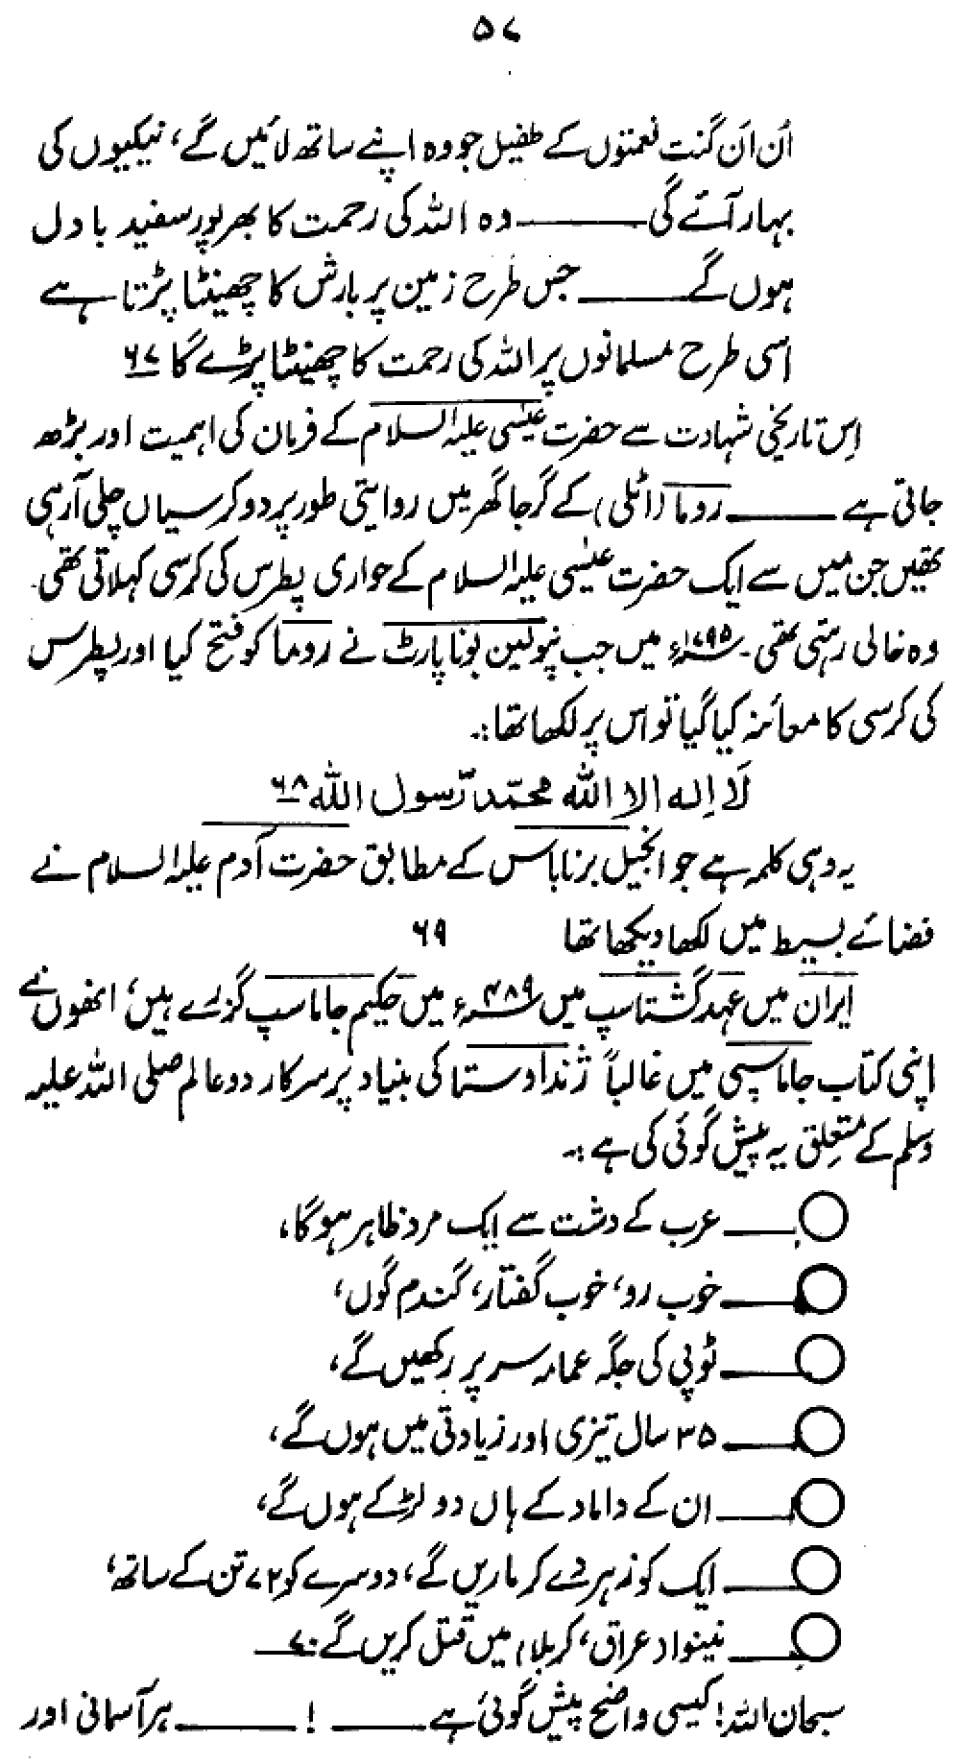 ۵۷
اُن اَن گنت نعمتوں کے طفیل جو وہ اپنے ساتھ لائیں گے، نیکیوں کی
بہار آئے گی ــــــــ وہ اللہ کی رحمت کا بھرپور سفید بادل
ہوں گے ــــــــ جس طرح زمین پر بارش کا چھینٹا پڑتا ہے
اسی طرح مسلمانوں پر اللہ کی رحمت کا چھینٹا پڑے گا ۶۷
اِس تاریخی شہادت سے حضرت عیسٰی علیہ السلام کے فرمان کی اہمیت اور بڑھ
جاتی ہے ــــــــ روما (اٹلی) کے گرجا گھر میں روایتی طور پر دو کرسیاں چلی آرہی
تھیں جن میں سے ایک حضرت عیسٰی علیہ السلام کے حواری پطرس کی کرسی کہلاتی تھی۔
وہ خالی رہتی تھی۔ ۱۷۹۵ء میں جب نپولین بونا پارٹ نے روما کو فتح کیا اور پطرس
کی کرسی کا معائنہ کیا گیا تو اس پر لکھا تھا:۔
لَا اِلٰہ الا اللہ محمّد رّسول اللہ ۶۸
یہ وہی کلمہ ہے جو انجیل برناباس کے مطابق حضرت آدم علیہ السلام نے
فضائے بسیط میں لکھا دیکھا تھا ۶۹
ایران میں عہد گشتاسپ میں ۴۸۹ء میں حکیم جاماسپ گزرے ہیں، انھوں نے
اپنی کتاب جاماسپی میں غالباً ژند اوستا کی بنیاد پر سرکار دو عالم صلی اللہ علیہ
وسلم کے متعلق یہ پیش گوئی کی ہے :۔
○ ــــــ عرب کے دشت سے ایک مرد ظاہر ہوگا،
○ ــــــ خوب رو، خوب گفتار، گندم گوں،
○ ــــــ ٹوپی کی جگہ عمامہ سر پر رکھیں گے،
○ ــــــ ۳۵ سال تیزی اور زیادتی میں ہوں گے،
○ ــــــ ان کے داماد کے ہاں دو لڑکے ہوں گے،
○ ــــــ ایک کو زہر دے کر ماریں گے، دوسرے کو ۷۲ تن کے ساتھ،
○ ــــــ نینوا د عراق، کربلا، میں قتل کریں گے ۷۰
سبحان اللہ! کیسی واضح پیش گوئی ہے ــــــــ ! ــــــــ ہر آسمانی اور